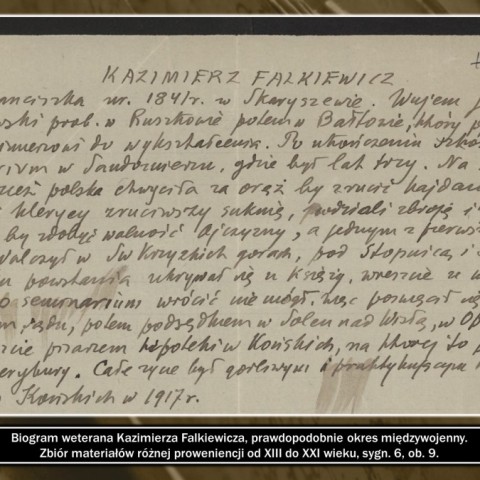 KAZIMIERZ FALKIEWICZ
anciszka ur. 1841r. w Skaryszewie. Wujem
wski prob. w Ruszkowie potem w Bałtowie, który p
do wykształcenia. Po ukończeniu szkół
rium w Sandomierzu, gdzie był lat trzy. Na
polska chwyciła za oręż by zrzucić kajdan
klerycy zrzuciwszy suknię, zbroję i
by zdobyć wolność Ojczyzny, a jednym z pierwsz
Walczył w Św Krzyskich gorach, pod Stopnicą i
u powstania ukrywał się u księży, wreszcie
o seminarium wrócić nie mógł, więc poświęcał się
potem podsędkiem w Solcu nad Wisłą, w Op
cie pisarzem hipoteki w Końskich, na której to p
erytury. Całe życie był gorliwym i praktykującym
Końskich w 1917r.
Biogram weterana Kazimierza Falkiewicza, prawdopodobnie okres międzywojenny.
Zbiór materiałów różnej proweniencji od XIII do XXI wieku, sygn. 6, ob. 9.